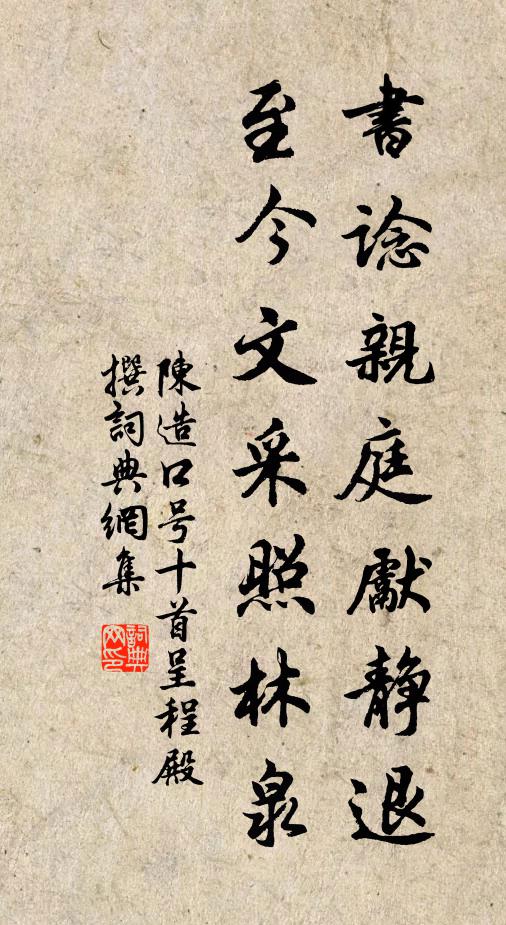 書諗親庭獻静退
至今文采照林泉
陳造口号十首呈程殿
撰詞典網集
詞典网印